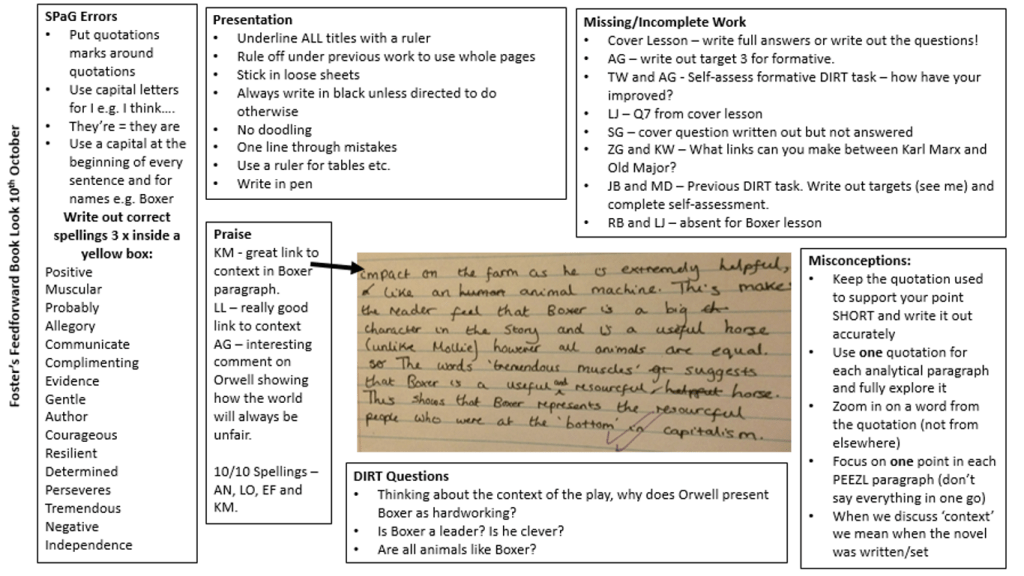 Foster's Feedforward Book Look 10th October
SPaG Errors
• Put quotations
marks around
quotations
• Use capital letters
for I e.g. I think….
• They're = they are
• Use a capital at the
beginning of every
sentence and for
names e.g. Boxer
Write out correct
spellings 3 x inside a
yellow box:
Positive
Muscular
Probably
Allegory
Communicate
Complimenting
Evidence
Gentle
Author
Courageous
Resilient
Determined
Perseveres
Tremendous
Negative
Independence
Presentation
• Underline ALL titles with a ruler
• Rule off under previous work to use whole pages
• Stick in loose sheets
• Always write in black unless directed to do
otherwise
• No doodling
• One line through mistakes
• Use a ruler for tables etc.
• Write in pen
Missing/Incomplete Work
• Cover Lesson – write full answers or write out the questions!
• AG – write out target 3 for formative.
• TW and AG - Self-assess formative DIRT task – how have your
improved?
• LJ – Q7 from cover lesson
• SG – cover question written out but not answered
• ZG and KW – What links can you make between Karl Marx and
Old Major?
• JB and MD – Previous DIRT task. Write out targets (see me) and
complete self-assessment.
• RB and LJ – absent for Boxer lesson
Praise
KM - great link to
context in Boxer
paragraph.
LL – really good
link to context
AG – interesting
comment on
Orwell showing
how the world
will always be
unfair.
10/10 Spellings –
AN, LO, EF and
KM.
impact on the farm as he is extremely helpful,
like an human animal machine. This make
the reader feel that Boxer is a big
character in the story and is a useful horse
(unlike Mollie) however all animals are equal.
so The words 'tremendous muscles' suggests
that Boxer is a useful and resourceful helpful horse.
This shows that Boxer represents the resourceful
people who were at the 'bottom' in capitalism.
DIRT Questions
• Thinking about the context of the play, why does Orwell present
Boxer as hardworking?
• Is Boxer a leader? Is he clever?
• Are all animals like Boxer?
Misconceptions:
• Keep the quotation used
to support your point
SHORT and write it out
accurately
• Use one quotation for
each analytical paragraph
and fully explore it
• Zoom in on a word from
the quotation (not from
elsewhere)
• Focus on one point in each
PEEZL paragraph (don't
say everything in one go)
• When we discuss 'context'
we mean when the novel
was written/set